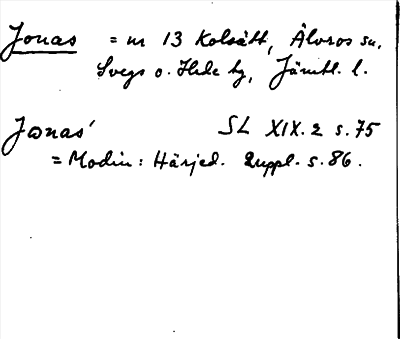 Jonas = nr 13 Kolsätt, Älvros sn,
Svegs o. Hede tg, Jämtl. l.
Jonas' SL XIX. 2 s. 75
= Modin: Härjed. Suppl. s. 86.